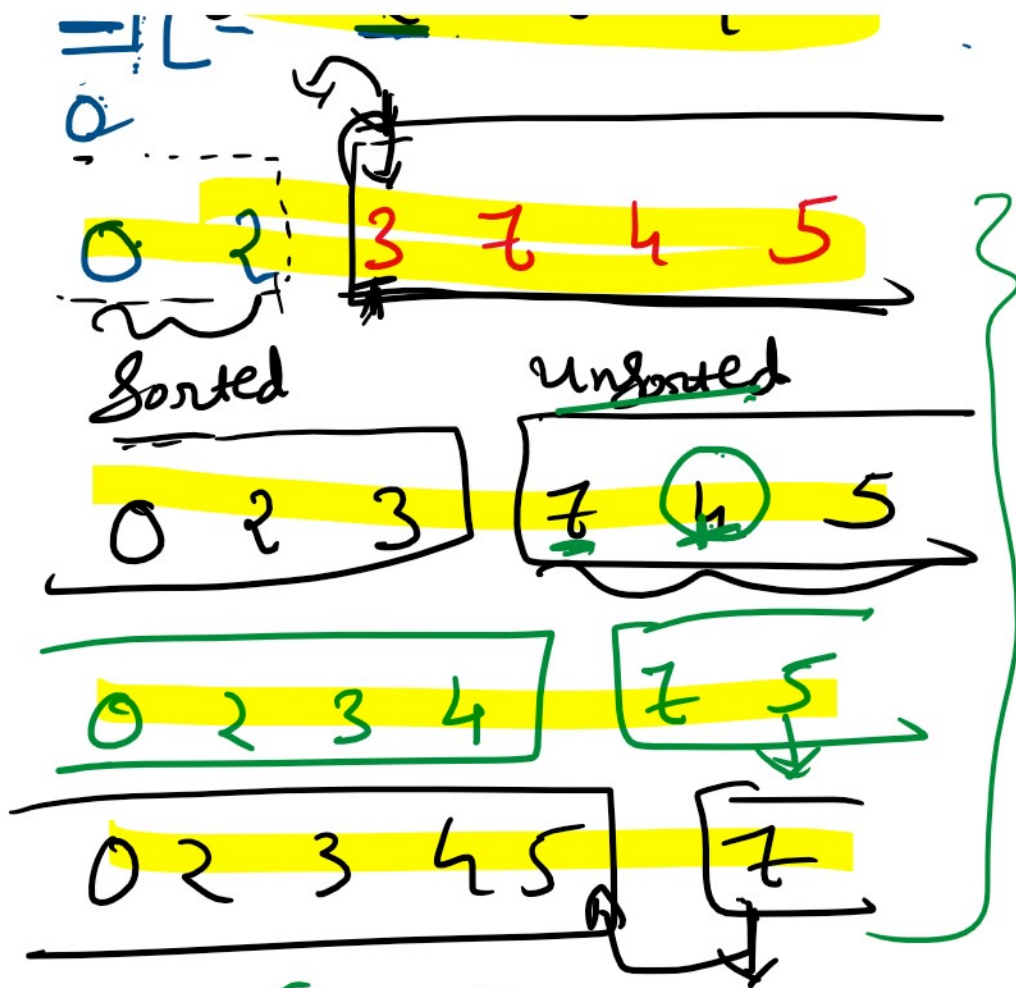 0
0 2 3 7 4 5
Sorted Unsorted
0 2 3 7 4 5
0 2 3 4 7 5
0 2 3 4 5 7